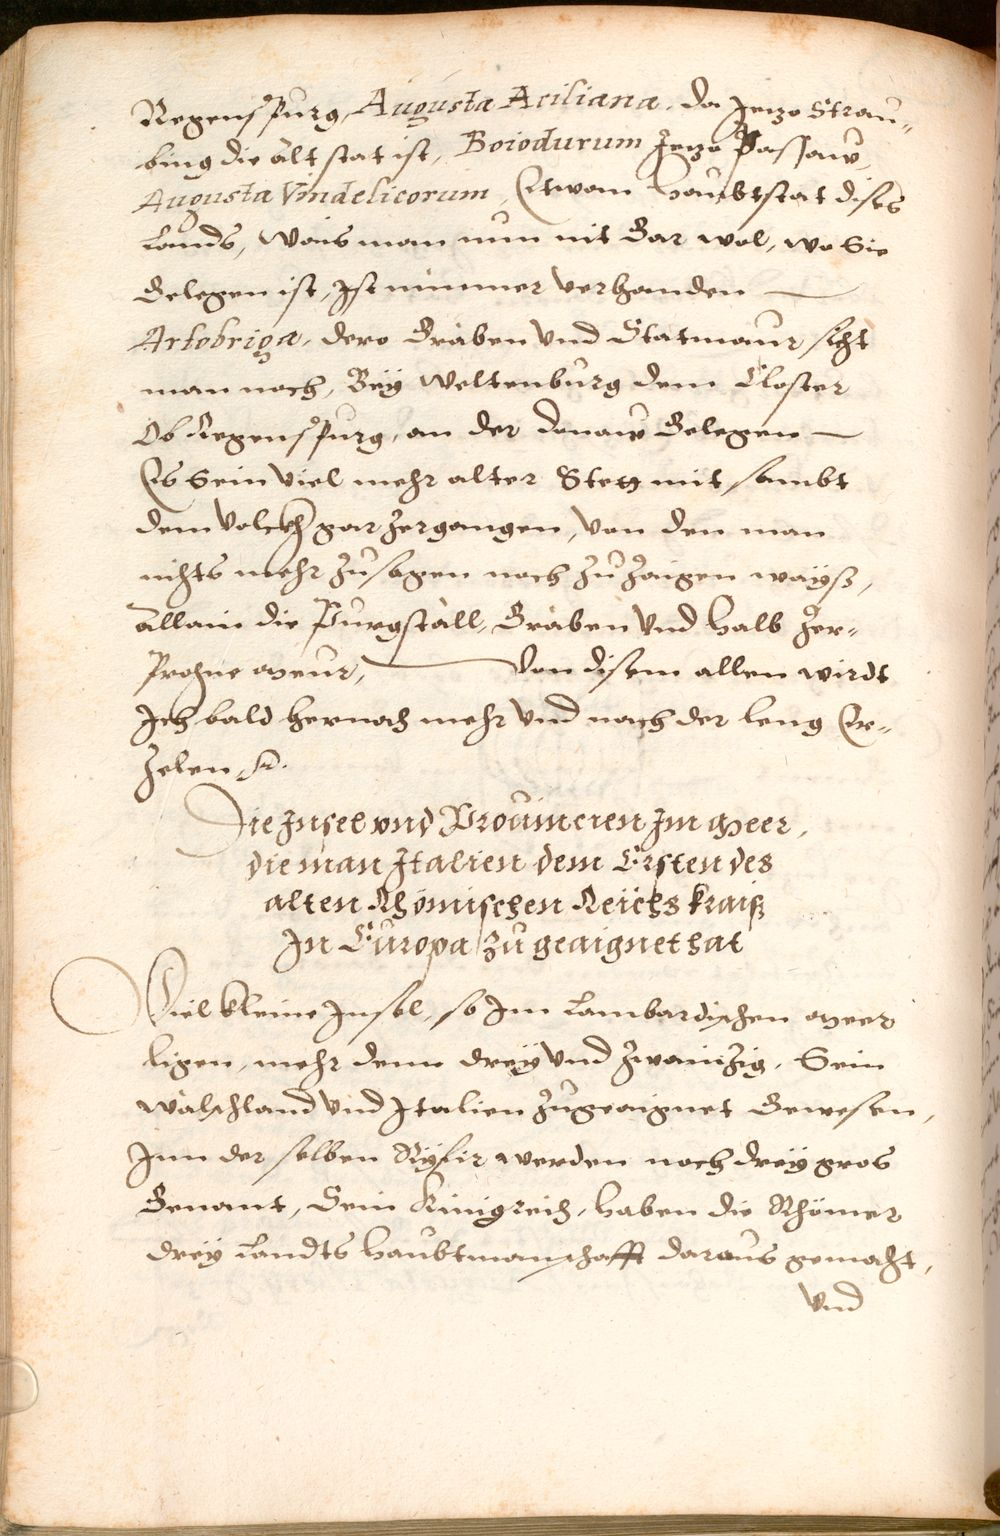 Regenspurg, Augusta Aciliana, da Jenzo Strau-
bing die alt stat ist, Boiodurum Jenzo Passaw,
Augusta Vindelicorum, Etwan haubtstat dises
Lands, Wais man nun nit Gar wol, wo Sie
Gelegen ist, Ist nimmer verhanden —
Artobriga, dero Gräben Vnd Statmaur sicht
man noch, Beÿ Weltenburg dem Closter
Ob Regenspurg, an der donaw Gelegen —
Es Sein Viel mehr alter Stett mit sambt
dem Volckh gar zergangen, Von den man
nichts mehr zu sagen noch zu zaigen waÿß,
allain die Purgställ, Gräben Vnd halb zer-
Prochne Meur, — Von disem allen wirdt
Ich bald hernach mehr Vnd nach der leng Er-
zelen, &c.
Die Insel vnd Prouincien Im Meer,
die man Italien dem Ersten des
alten Rhömischen Reichs kraiß
In Europa zu geaignet hat
Viel kleine Insel, so Im Lambardischen Meer
ligen, mehr denn dreÿ Vnd zwainzig, Sein
Wälschland Vnd Italien zugeaignet Gewesen,
Inn der selben Rÿfir werden noch dreÿ gros
Genant, Sein Künigreich, haben die Rhömer
dreÿ Landts haubtmanschafft daraus gemacht,
Vnd